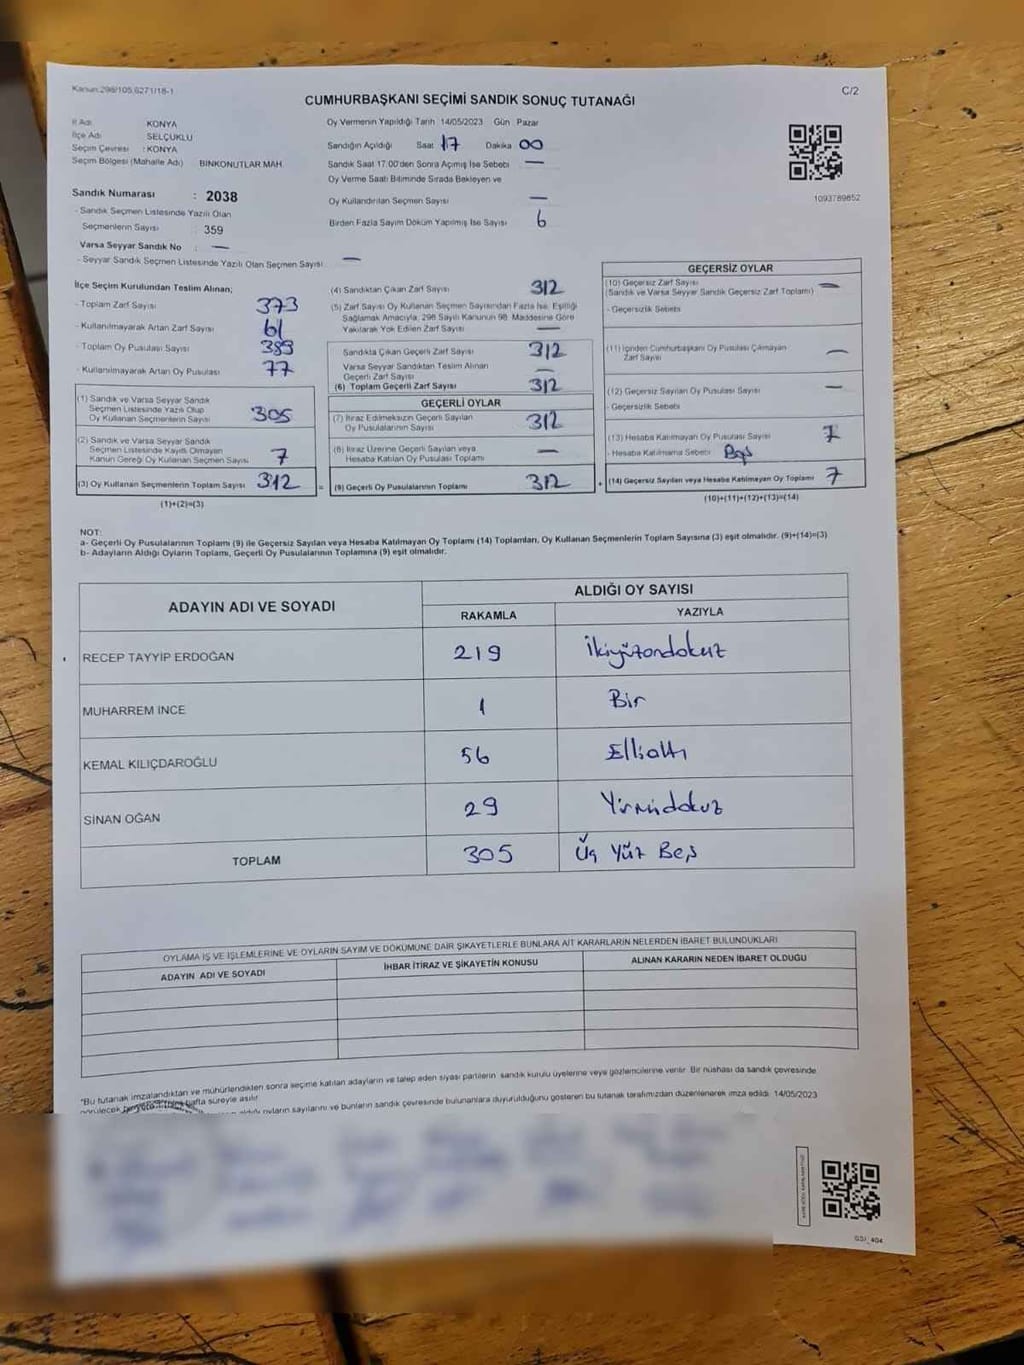 Kanun:298/105,6271/18-1
C/2
CUMHURBAŞKANI SEÇİMİ SANDIK SONUÇ TUTANAĞI
İl Adı KONYA
İlçe Adı SELÇUKLU
Seçim Çevresi : KONYA
Seçim Bölgesi (Mahalle Adı) BINKONUTLAR MAH.
Sandık Numarası : 2038
- Sandık Seçmen Listesinde Yazılı Olan
Seçmenlerin Sayısı : 359
Varsa Seyyar Sandık No : —
- Seyyar Sandık Seçmen Listesinde Yazılı Olan Seçmen Sayısı —
Oy Vermenin Yapıldığı Tarih 14/05/2023 Gün : Pazar
Sandığın Açıldığı Saat 17 Dakika 00
Sandık Saat 17.00'den Sonra Açımış İse Sebebi —
Oy Verme Saati Bitiminde Sırada Bekleyen ve
Oy Kullandırılan Seçmen Sayısı —
Birden Fazla Sayım Döküm Yapılmış İse Sayısı 6
1093789852
İlçe Seçim Kurulundan Teslim Alınan;
- Toplam Zarf Sayısı 373
- Kullanılmayarak Artan Zarf Sayısı 61
- Toplam Oy Pusulası Sayısı 389
- Kullanılmayarak Artan Oy Pusulası 77
(1) Sandık ve Varsa Seyyar Sandık
Seçmen Listesinde Yazılı Olup
Oy Kullanan Seçmenlerin Sayısı 305
(2) Sandık ve Varsa Seyyar Sandık
Seçmen Listesinde Kayıtlı Olmayan
Kanun Gereği Oy Kullanan Seçmen Sayısı 7
(3) Oy Kullanan Seçmenlerin Toplam Sayısı 312
(1)+(2)=(3)
(4) Sandıktan Çıkan Zarf Sayısı 312
(5) Zarf Sayısı Oy Kullanan Seçmen Sayısından Fazla İse, Eşitliği
Sağlamak Amacıyla, 298 Sayılı Kanunun 98. Maddesine Göre
Yakılarak Yok Edilen Zarf Sayısı —
Sandıkta Çıkan Geçerli Zarf Sayısı 312
Varsa Seyyar Sandıktan Teslim Alınan
Geçerli Zarf Sayısı —
(6) Toplam Geçerli Zarf Sayısı 312
GEÇERLİ OYLAR
(7) İtiraz Edilmeksizin Geçerli Sayılan
Oy Pusulalarının Sayısı 312
(8) İtiraz Üzerine Geçerli Sayılan veya
Hesaba Katılan Oy Pusulası Toplamı —
= (9) Geçerli Oy Pusulalarının Toplamı 312
GEÇERSİZ OYLAR
(10) Geçersiz Zarf Sayısı
(Sandık ve Varsa Seyyar Sandık Geçersiz Zarf Toplamı) —
- Geçersizlik Sebebi
(11) İçinden Cumhurbaşkanı Oy Pusulası Çıkmayan
Zarf Sayısı —
(12) Geçersiz Sayılan Oy Pusulası Sayısı —
- Geçersizlik Sebebi
(13) Hesaba Katılmayan Oy Pusulası Sayısı 7
- Hesaba Katılmama Sebebi Boş
+ (14) Geçersiz Sayılan veya Hesaba Katılmayan Oy Toplamı 7
(10)+(11)+(12)+(13)=(14)
NOT:
a- Geçerli Oy Pusulalarının Toplamı (9) ile Geçersiz Sayılan veya Hesaba Katılmayan Oy Toplamı (14) Toplamları, Oy Kullanan Seçmenlerin Toplam Sayısına (3) eşit olmalıdır. (9)+(14)=(3)
b- Adayların Aldığı Oyların Toplamı, Geçerli Oy Pusulalarının Toplamına (9) eşit olmalıdır.
ADAYIN ADI VE SOYADI
ALDIĞI OY SAYISI
RAKAMLA YAZIYLA
RECEP TAYYİP ERDOĞAN 219 İkiyüzondokuz
MUHARREM İNCE 1 Bir
KEMAL KILIÇDAROĞLU 56 Ellialtı
SİNAN OĞAN 29 Yirmidokuz
TOPLAM 305 Üç Yüz Beş
OYLAMA İŞ VE İŞLEMLERİNE VE OYLARIN SAYIM VE DÖKÜMÜNE DAİR ŞİKAYETLERLE BUNLARA AİT KARARLARIN NELERDEN İBARET BULUNDUKLARI
ADAYIN ADI VE SOYADI İHBAR İTİRAZ VE ŞİKAYETİN KONUSU ALINAN KARARIN NEDEN İBARET OLDUĞU
"Bu tutanak imzalandıktan ve mühürlendikten sonra seçime katılan adayların ve talep eden siyasi partilerin sandık kurulu üyelerine veya gözlemcilerine verilir. Bir nüshası da sandık çevresinde
görülecek hafta süreyle asılır.
aldığı oyların sayılarını ve bunların sandık çevresinde bulunanlara duyurulduğunu gösteren bu tutanak tarafımızdan düzenlenerek imza edildi. 14/05/2023